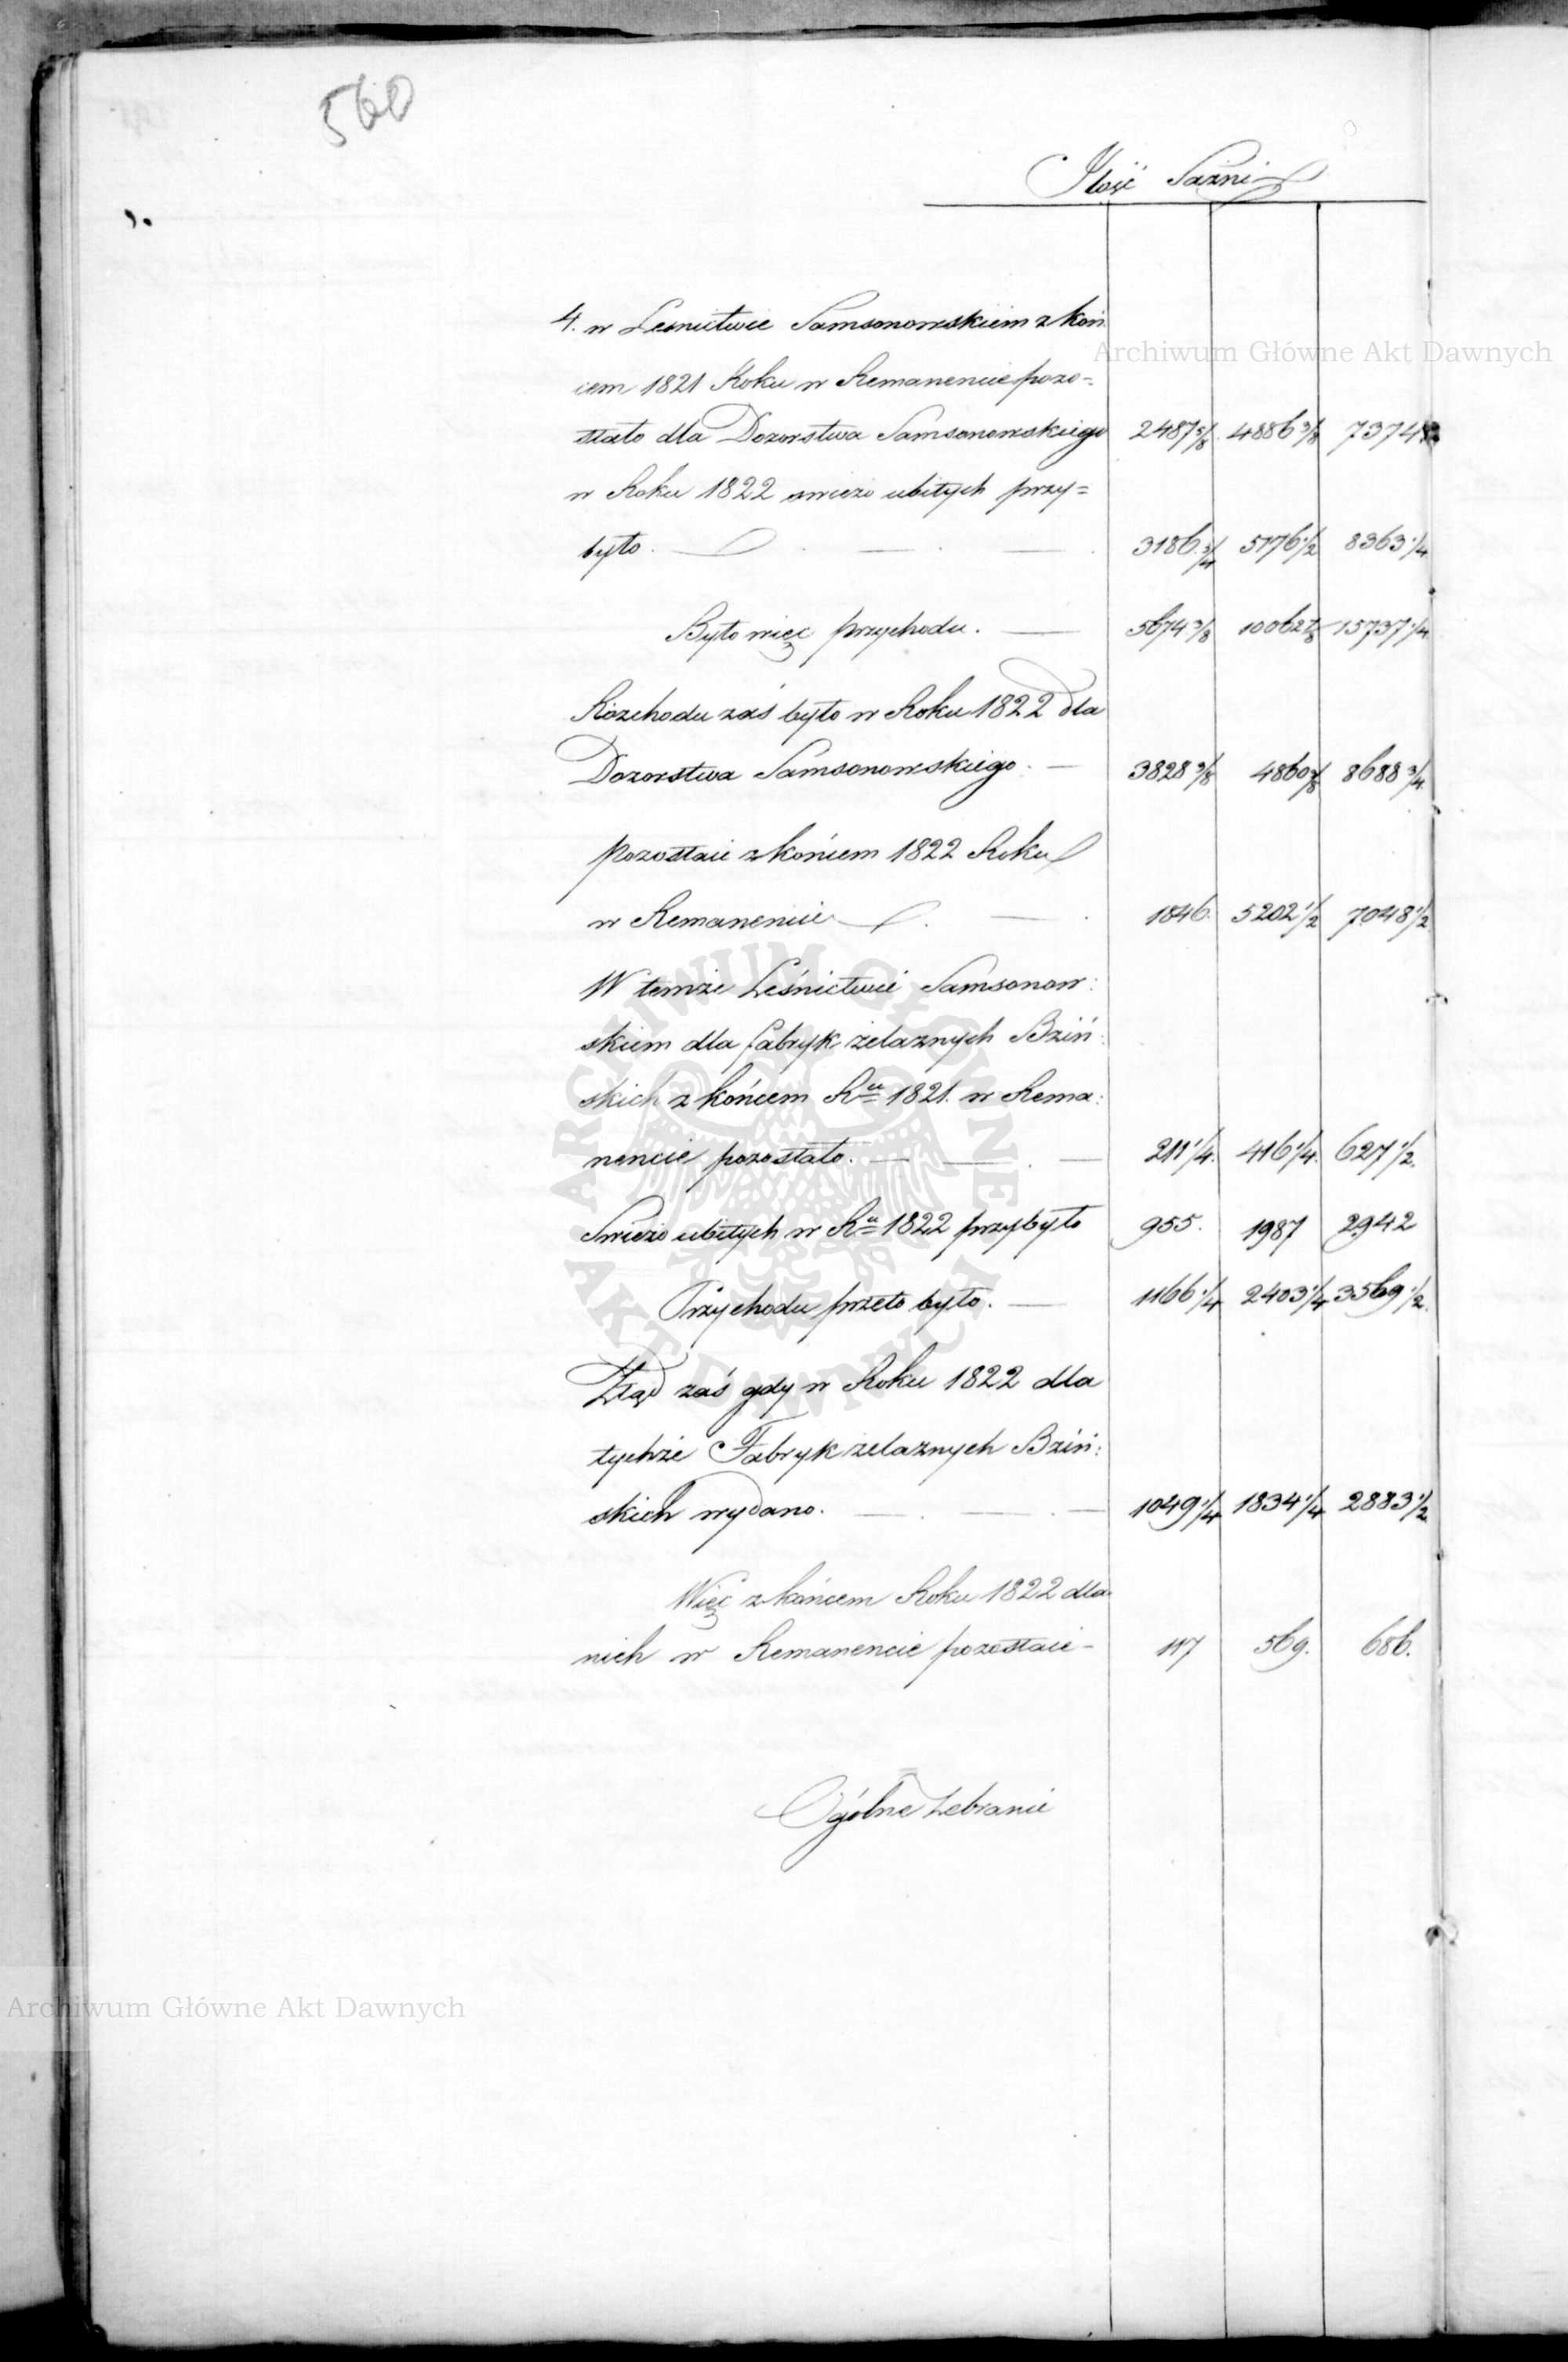 560
Ilość Sążni
4. w Leśnictwie Samsonowskiem z koń
cem 1821 Roku w Remanencie pozo=
stało dla Dozorstwa Samsonowskiego 2487 5/8 4886 3/8 7374
w Roku 1822 swieżo ubitych przy=
było. 3186 3/4 5176 1/2 8363 1/4
Było więc przychodu. 5674 3/8 10062 7/8 15737 1/4
Rozchodu zaś było w Roku 1822 dla
Dozorstwa Samsonowskiego. 3828 3/8 4860 3/8 8688 3/4
pozostaie z końcem 1822 Roku
w Remanencie 1846. 5202 1/2 7048 1/2
W temże Leśnictwie Samsonow:
skiem dla fabryk żelaznych Bziń:
skich z końcem Ru 1821. w Rema:
nencie pozostało. 211 1/4. 416 1/4. 627 1/2.
Swieżo ubitych w Ru 1822 przybyło 955. 1987 2942
Przychodu przeto było. 1166 1/4 2403 1/4 3569 1/2.
Ztąd zaś gdy w Roku 1822 dla
tychże Fabryk żelaznych Bziń:
skich wydano. 1049 1/4 1834 1/4 2883 1/2
Więc z końcem Roku 1822 dla
nich w Remanencie pozostaie - 117 569. 686.
Ogólne Zebranie
Archiwum Główne Akt Dawnych
Archiwum Główne Akt Dawnych
ARCHIWUM GŁÓWNE AKT DAWNYCH